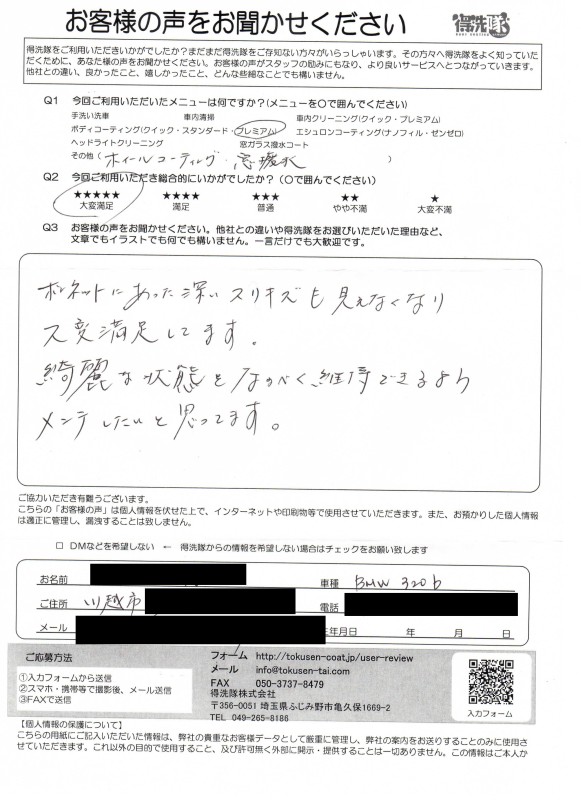 お客様の声をお聞かせください
得洗隊
得洗隊をご利用いただきいかがでしたか?まだまだ得洗隊をご存知ない方々がいらっしゃいます。その方々へ得洗隊をよく知っていた
だくために、あなた様の声をお聞かせください。お客様の声がスタッフの励みにもなり、より良いサービスへとつながっていきます。
他社との違い、良かったこと、嬉しかったこと、どんな些細なことでも構いません。
Q1 今回ご利用いただいたメニューは何ですか?(メニューを〇で囲んでください)
手洗い洗車 車内清掃 車内クリーニング(クイック・プレミアム)
ボディコーティング(クイック・スタンダード・プレミアム) エシュロンコーティング(ナノフィル・ゼンゼロ)
ヘッドライトクリーニング 窓ガラス撥水コート
その他( ホイールコーティング・窓撥水 )
Q2 今回ご利用いただき総合的にいかがでしたか?(〇で囲んでください)
★★★★★ ★★★★ ★★★ ★★ ★
大変満足 満足 普通 やや不満 大変不満
Q3 お客様の声をお聞かせください。他社との違いや得洗隊をお選びいただいた理由など、
文章でもイラストでも何でも構いません。一言だけでも大歓迎です。
ボンネットにあった深いスリキズも見えなくなり
大変満足してます。
綺麗な状態をなるべく維持できるよう
メンテしたいと思ってます。
ご協力いただき有難うございます。
こちらの「お客様の声」は個人情報を伏せた上で、インターネットや印刷物等で使用させていただきます。また、お預かりした個人情報
は適正に管理し、漏洩することは致しません。
□ DMなどを希望しない ← 得洗隊からの情報を希望しない場合はチェックをお願い致します
お名前 車種 BMW 320d
ご住所 川越市 電話
メール 年月日 年 月 日
ご応募方法
①入力フォームから送信
②スマホ・携帯等で撮影後、メール送信
③FAXで送信
フォーム http://tokusen-coat.jp/user-review
メール info@tokusen-tai.com
FAX 050-3737-8479
得洗隊株式会社
〒356-0051 埼玉県ふじみ野市亀久保1669-2
TEL 049-265-8186
入力フォーム
【個人情報の保護について】
こちらの用紙にご記入いただいた情報は、弊社の貴重なお客様データとして厳重に管理し、弊社の案内をお送りすることのみに使用さ
せていただきます。これ以外の目的で使用すること、及び許可無く外部に開示・提供することは一切ありません。この情報はご本人か